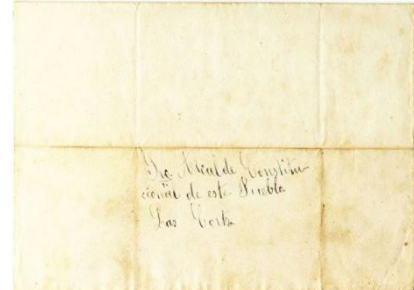 Sre Alcalde Constitu-
cional de este Pueblo
Las